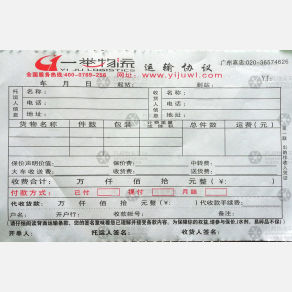 一举物流 运输协议 广州高店:020-36574626
YI JU LOGISTICS
全国服务热线:400-0769-256 网址:www.yijuwl.com YJ:
年 月 日 起站: 到站:
托运人信息 名称: 收货人信息 名称:
电话: 电话:
地址: 地址:
货物名称 件数 包装 总件数 运费(元)
保价声明价值: 保价费: 中转费:
大车收送费: 送货费: 送货费:
收费合计: 万 仟 佰 拾 元 整(¥ )
付款方式: 已付 提付 月结
代收货款: 万 仟 佰 拾 元整(¥ )元 代收款手续费:
户名: 开户行: 收款账号: 备注:
开单人: 托运人签名: 收货人签名: